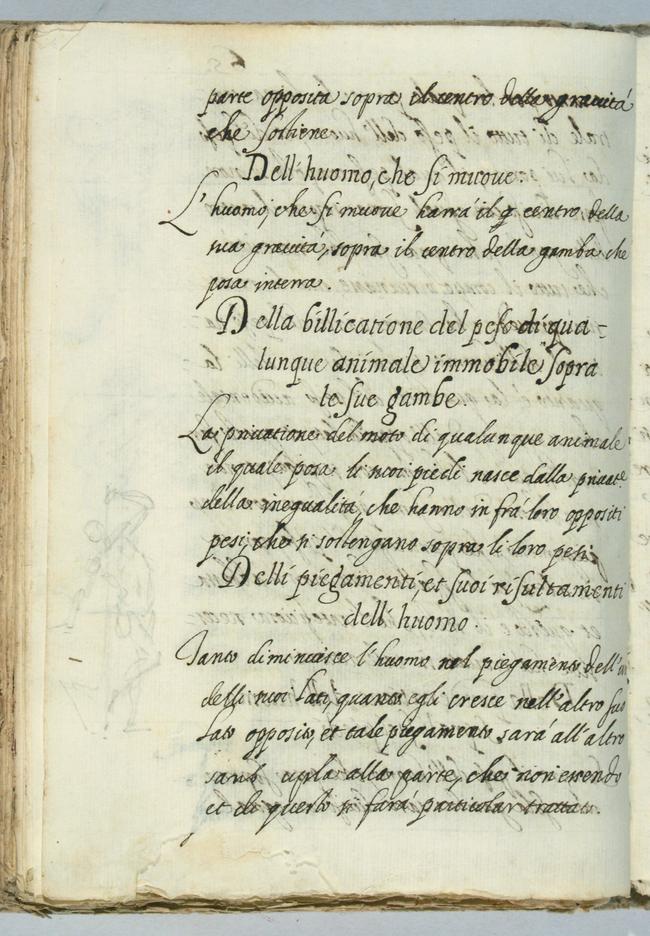 parte opposita sopra il centro della gravità
che sostiene.
Dell'huomo, che si muove.
L'huomo, che si muove harrà il g centro della
sua gravità, sopra il centro della gamba che
posa interra.
Della billicatione del peso di qua=
lunque animale immobile sopra
le sue gambe.
La privatione del moto di qualunque animale
il quale posa li suoi piedi nasce dalla privat.e
della inegualità, che hanno infrà loro oppositi
pesi, che si sostengano sopra li loro pesi.
Delli piegamenti, et suoi risultamenti
dell'huomo
Tanto diminuisce l'huomo nel piegamento dell'u
delli suoi lati, quanto egli cresce nell'altro suo
lato opposito, et tale piegamento sarà all'altro
alla parte, che non essendo
et di questo si farà particolar trattato.